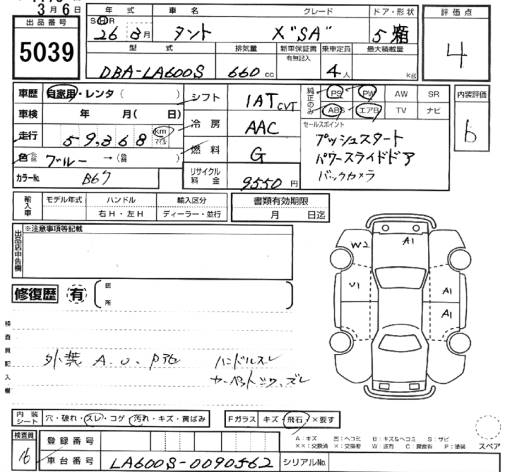 3月6日
出品番号
5039
年式 車名 グレード ドア・形状
SH 26年 3月 タント X"SA" 5 箱
型式 排気量 新車保証書 有無記入 乗車定員 最大積載量
DBA-LA600S 660cc 4人 kg
評価点
4
車歴 自家用・レンタ( )
車検 年 月( 日)
走行 59,368 km マイル
色 ブルー →
カラーNo. B67
シフト 1AT CVT
冷房 AAC
燃料 G
リサイクル料金 9550円
純正のみ PS PW AW SR
ABS エアB TV ナビ
内装評価
b
セールスポイント
プッシュスタート
パワースライドドア
バックカメラ
輸入車 モデル年式 ハンドル 輸入区分
年 右H・左H ディーラー・並行
書類有効期限
月 日迄
出品店申告欄 ※注意事項等記載
修復歴 有 箇所
検査員記入欄
外装 A.U.P36 ハンドルスレ
カーペットシワ、ズレ
W2 A1
U1 A1
A1
内装シート 穴・破れ・スレ・コゲ 汚れ・キズ・黄ばみ Fガラス キズ・飛石・×要す
A:キズ 凹:ヘコミ B:キズ&ヘコミ S:サビ
スペア
検査員 16
登録番号
車台番号 LA600S-0090562 シリアルNo.